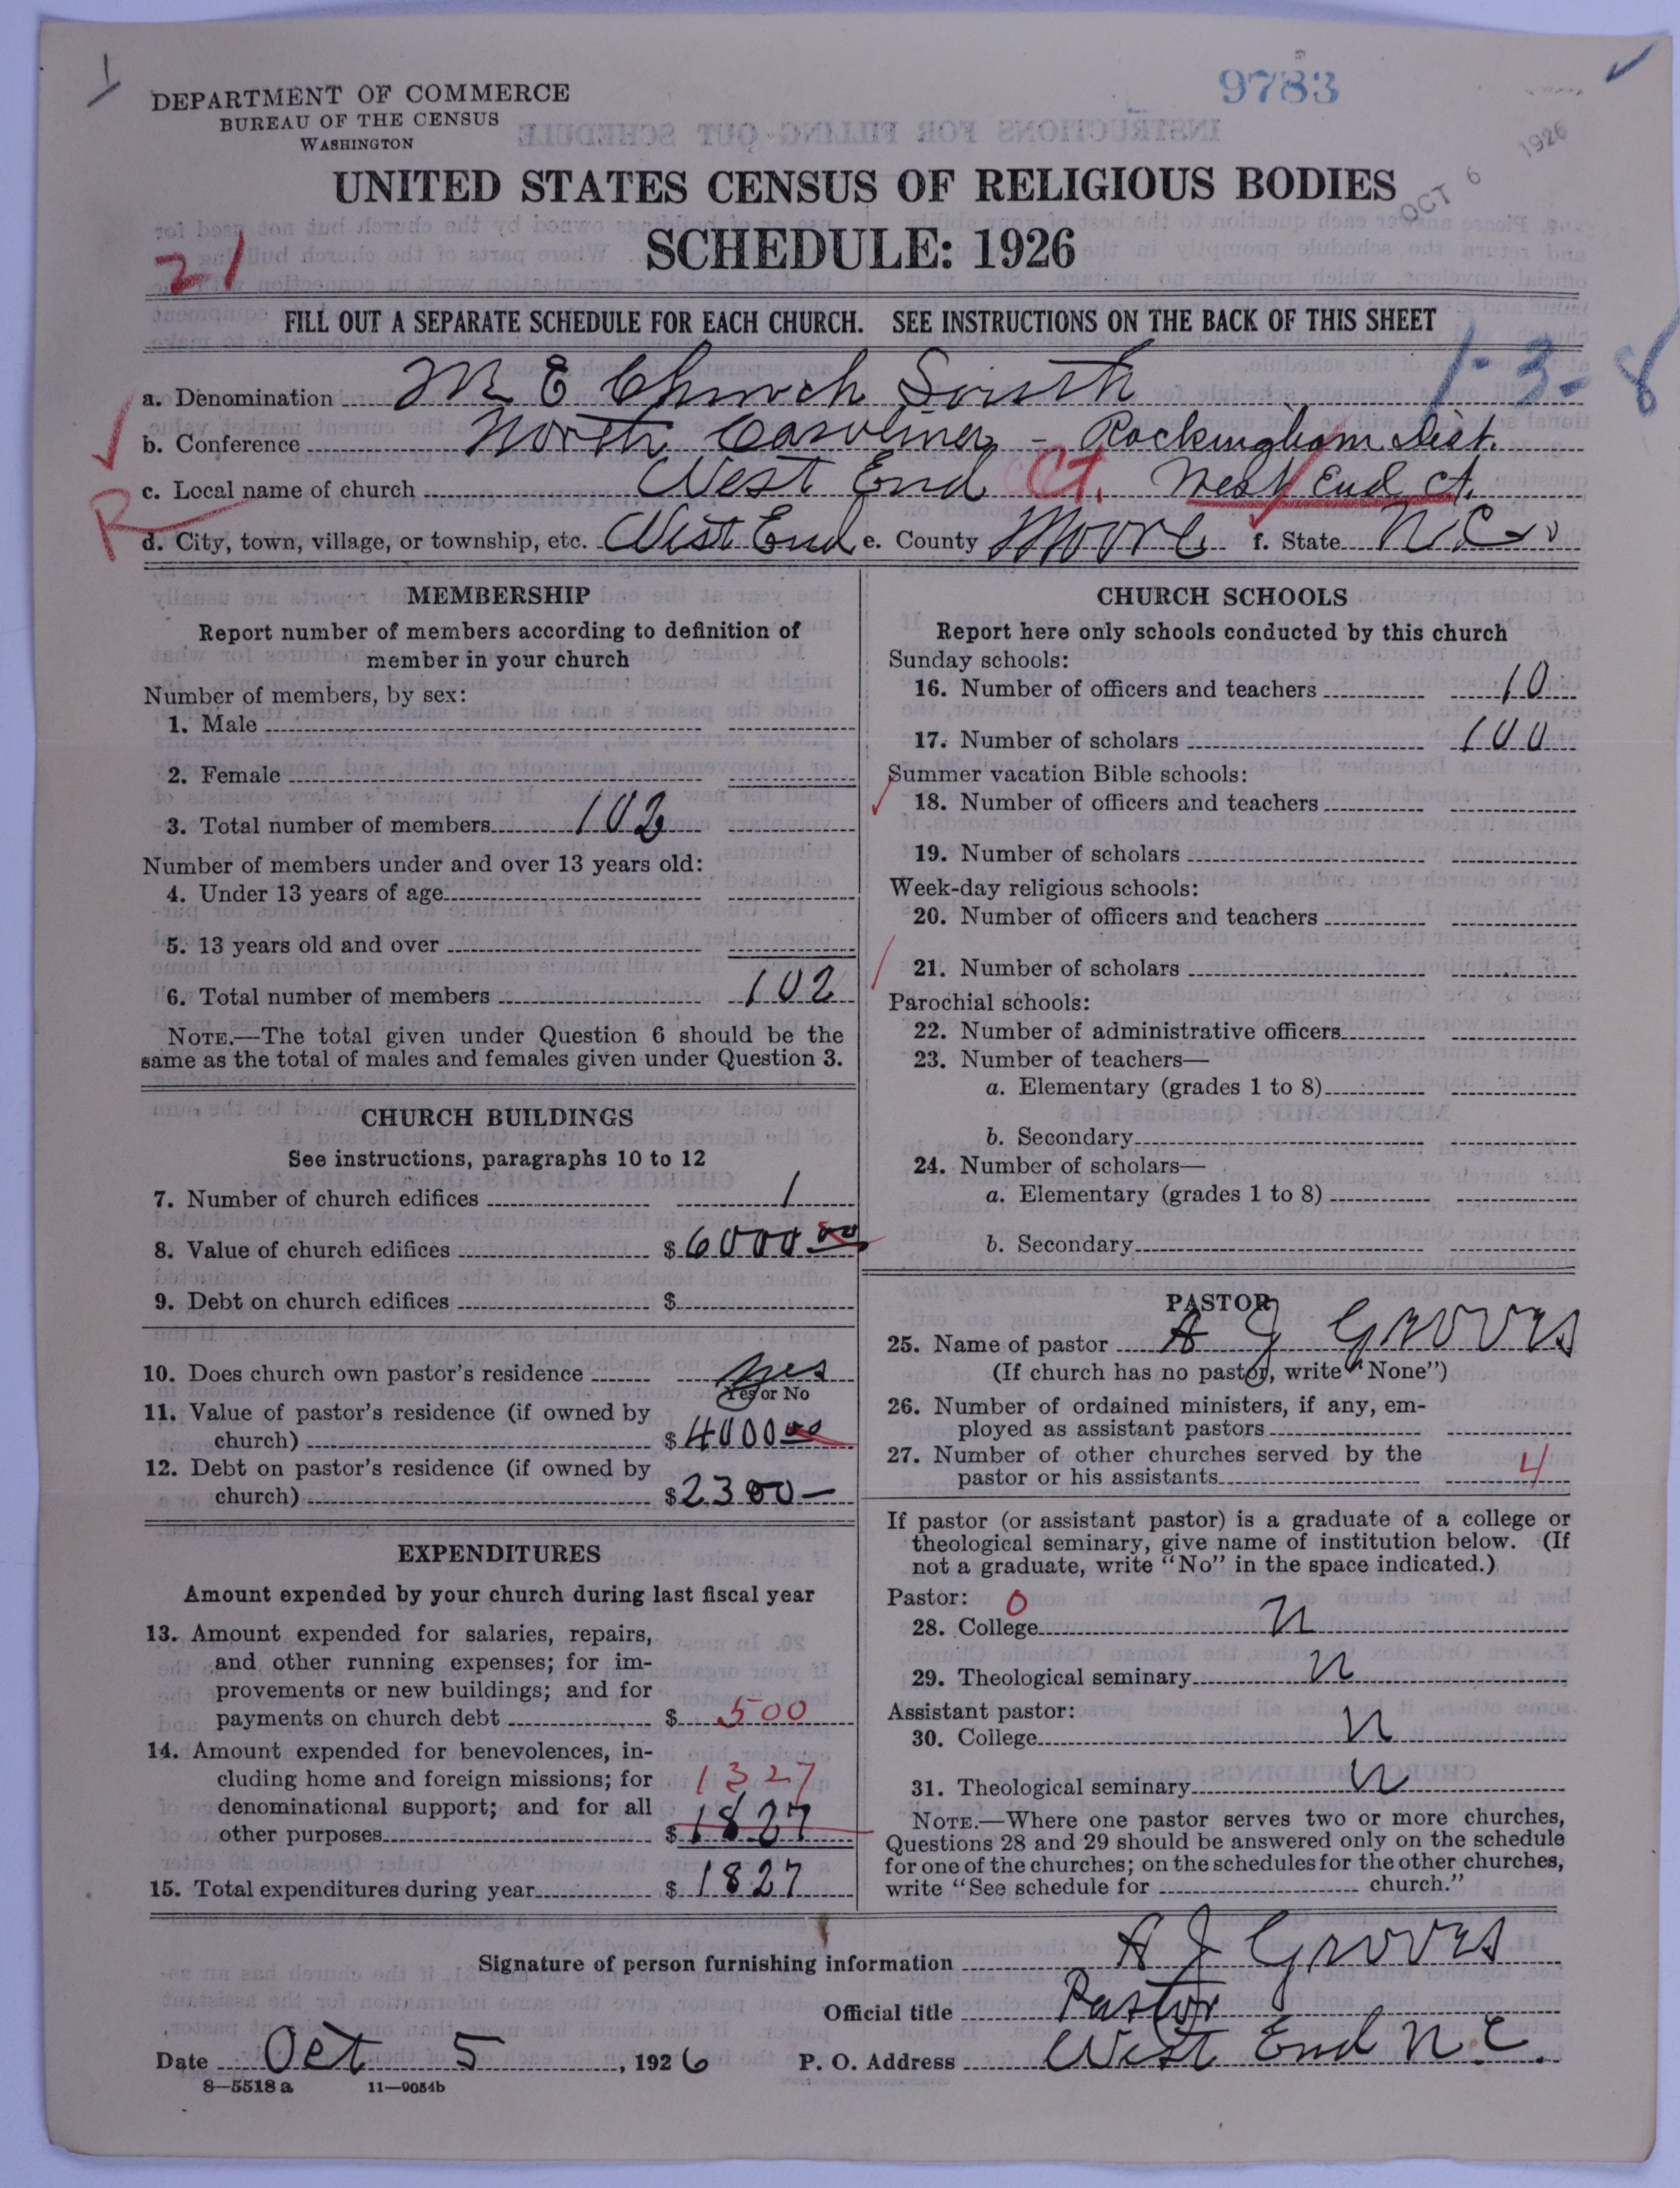 9783
DEPARTMENT OF COMMERCE
BUREAU OF THE CENSUS
WASHINGTON
OCT 6 1926
UNITED STATES CENSUS OF RELIGIOUS BODIES
SCHEDULE: 1926
21
FILL OUT A SEPARATE SCHEDULE FOR EACH CHURCH. SEE INSTRUCTIONS ON THE BACK OF THIS SHEET
1-3-8
a. Denomination M E Church South
b. Conference North Carolina - Rockingham Dist.
c. Local name of church West End Ct. West End Ct.
R
d. City, town, village, or township, etc. West End e. County Moore f. State N.C.
MEMBERSHIP
Report number of members according to definition of
member in your church
Number of members, by sex:
1. Male
2. Female
3. Total number of members 102
Number of members under and over 13 years old:
4. Under 13 years of age
5. 13 years old and over
6. Total number of members 102
NOTE.—The total given under Question 6 should be the
same as the total of males and females given under Question 3.
CHURCH BUILDINGS
See instructions, paragraphs 10 to 12
7. Number of church edifices 1
8. Value of church edifices $6000 00
9. Debt on church edifices $
10. Does church own pastor's residence Yes
Yes or No
11. Value of pastor's residence (if owned by
church) $4000 00
12. Debt on pastor's residence (if owned by
church) $2300 —
EXPENDITURES
Amount expended by your church during last fiscal year
13. Amount expended for salaries, repairs,
and other running expenses; for im-
provements or new buildings; and for
payments on church debt $ 500
14. Amount expended for benevolences, in-
cluding home and foreign missions; for 1327
denominational support; and for all
other purposes $ 1827
15. Total expenditures during year $ 1827
CHURCH SCHOOLS
Report here only schools conducted by this church
Sunday schools:
16. Number of officers and teachers 10
17. Number of scholars 100
Summer vacation Bible schools:
18. Number of officers and teachers
19. Number of scholars
Week-day religious schools:
20. Number of officers and teachers
21. Number of scholars
Parochial schools:
22. Number of administrative officers
23. Number of teachers—
a. Elementary (grades 1 to 8)
b. Secondary
24. Number of scholars—
a. Elementary (grades 1 to 8)
b. Secondary
PASTOR
25. Name of pastor A J Groves
(If church has no pastor, write "None")
26. Number of ordained ministers, if any, em-
ployed as assistant pastors
27. Number of other churches served by the
pastor or his assistants 4
If pastor (or assistant pastor) is a graduate of a college or
theological seminary, give name of institution below. (If
not a graduate, write "No" in the space indicated.)
Pastor: 0
28. College n
29. Theological seminary n
Assistant pastor:
30. College n
31. Theological seminary n
NOTE.—Where one pastor serves two or more churches,
Questions 28 and 29 should be answered only on the schedule
for one of the churches; on the schedules for the other churches,
write "See schedule for church."
Signature of person furnishing information A J Groves
Official title Pastor
Date Oct 5, 1926 P. O. Address West End N.C.
8—5518 a 11—9054b